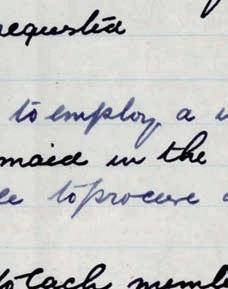 requested
to employ a
maid in the
to procure
each